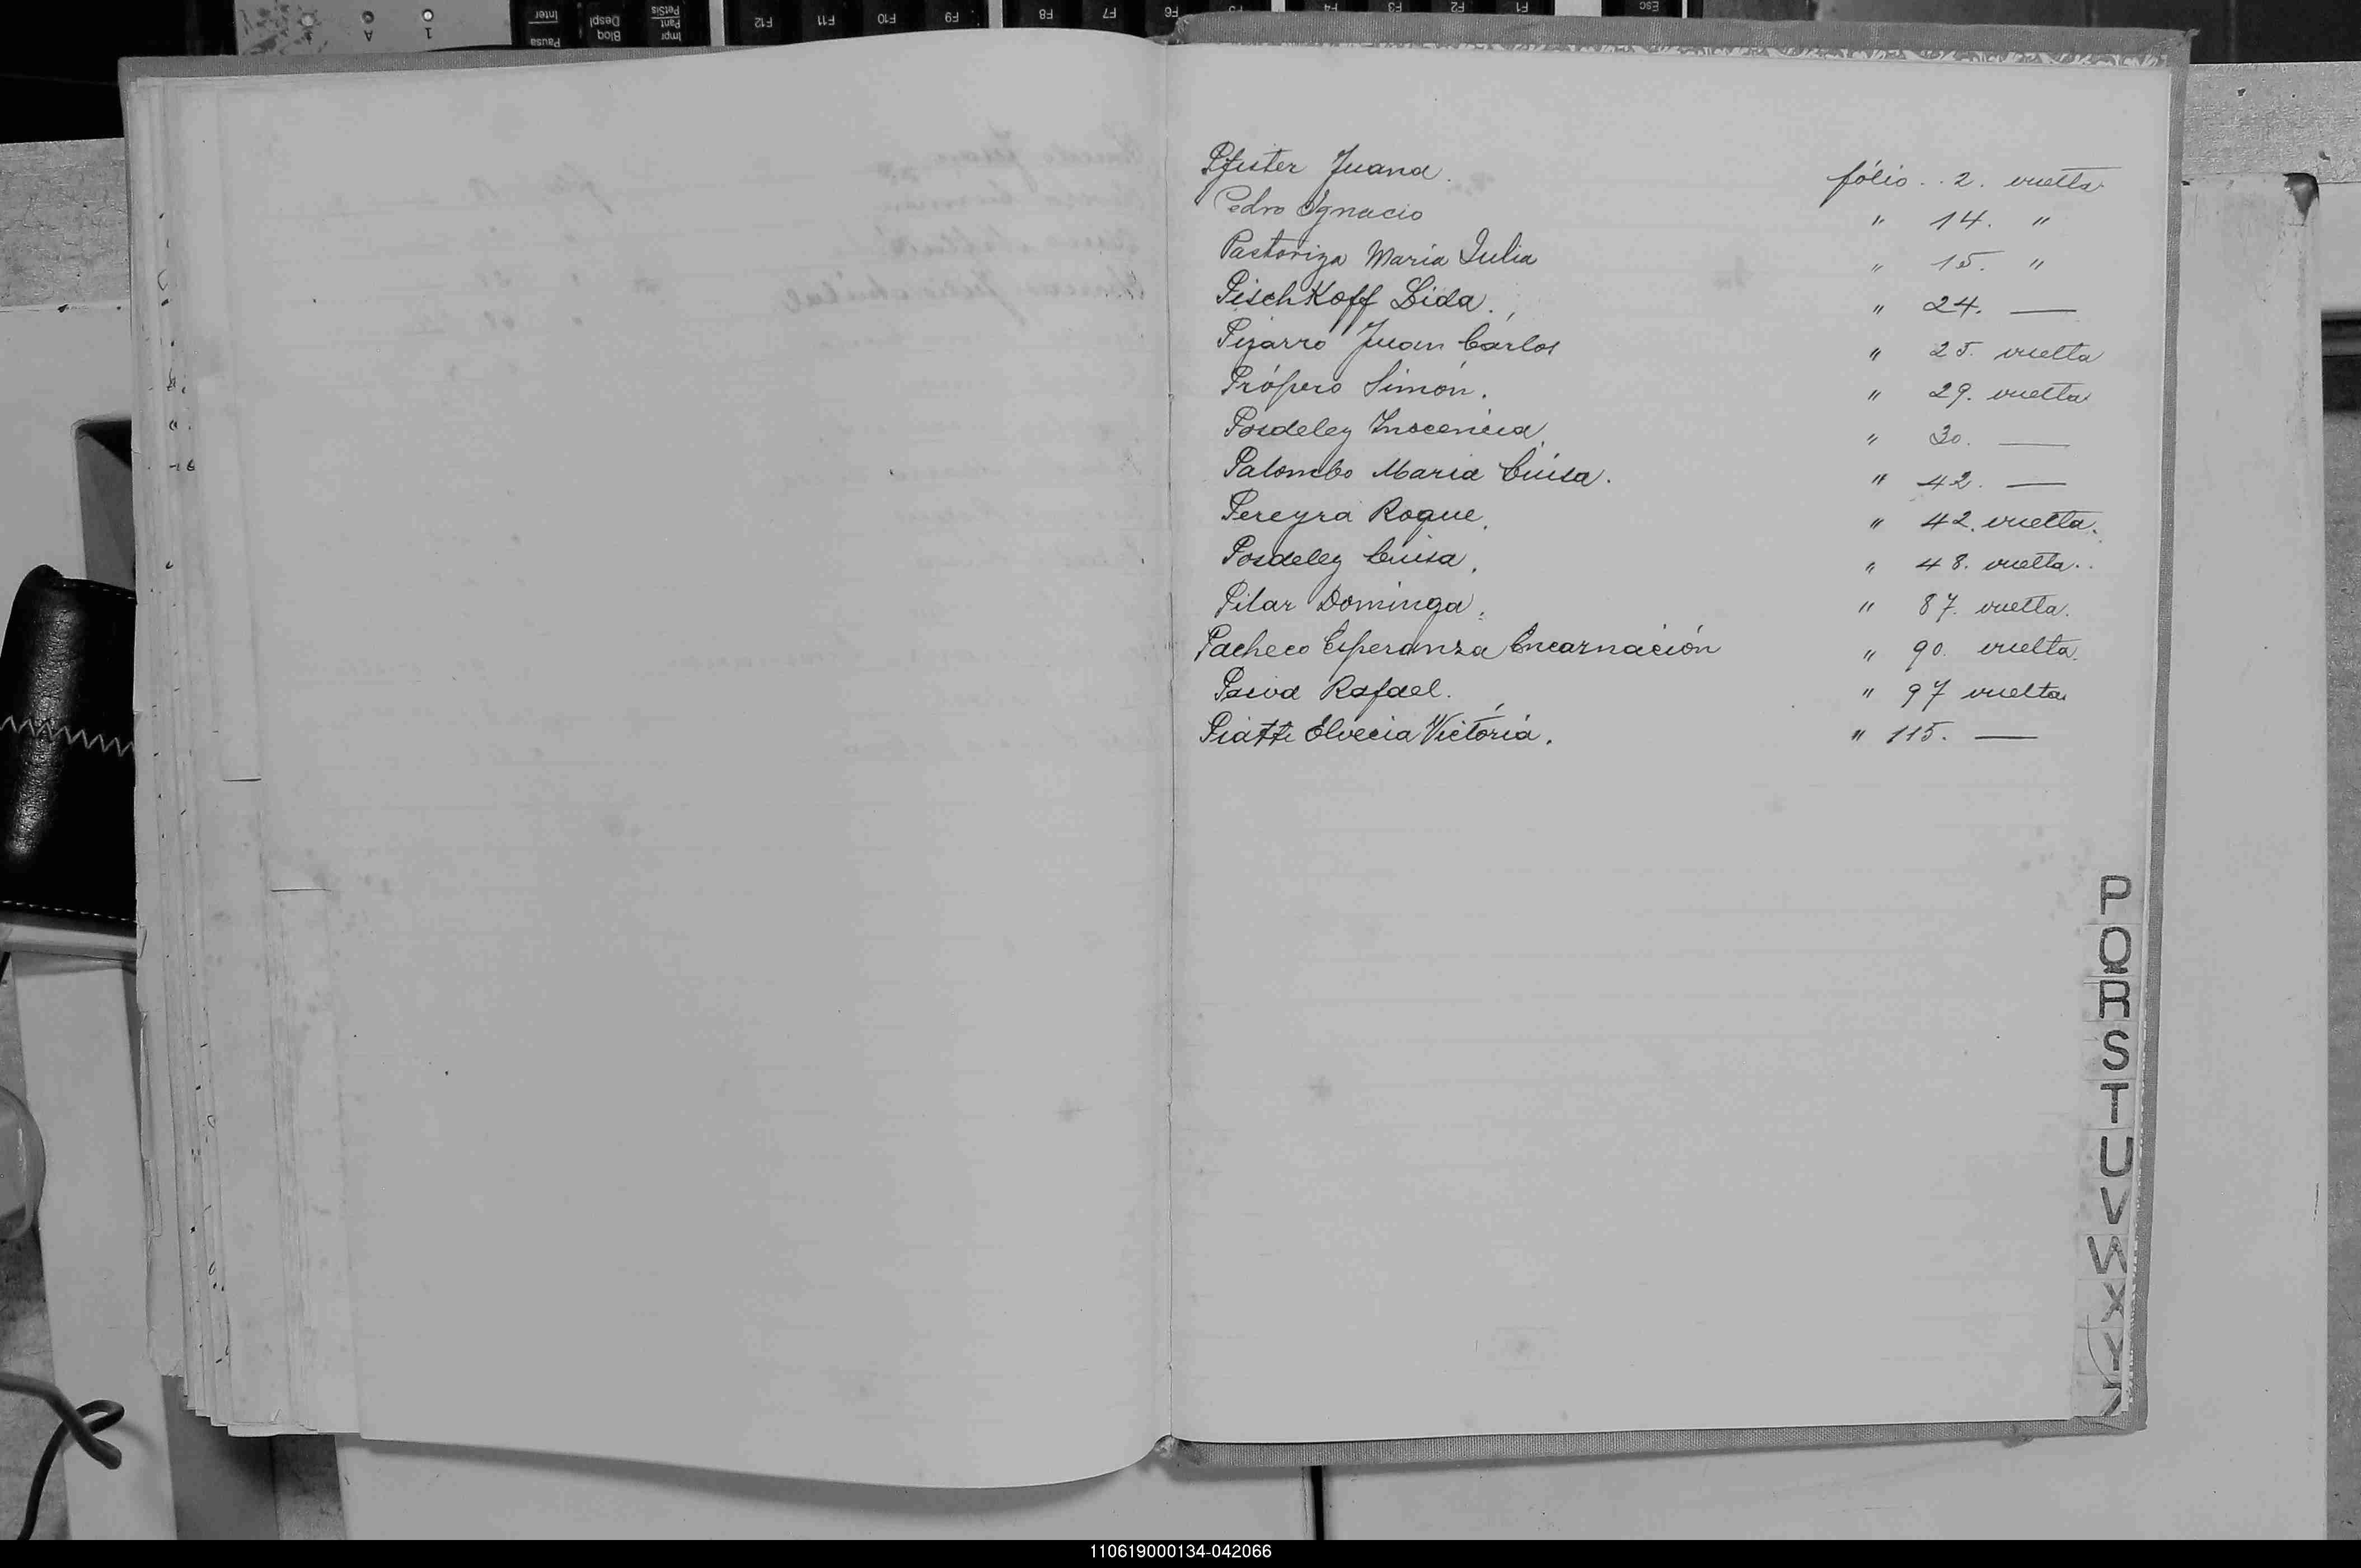 Pfister Juana. fólio . . 2. vuelta
Pedro Ygnacio " 14. "
Pastoriza María Julia " 15. "
PischKoff Lida. " 24. —
Pizarro Juan Cárlos " 25. vuelta
Próspero Simón. " 29. vuelta
Posdeley Inocencia. " 30. —
Palombo María Luisa. " 42. —
Pereyra Roque. " 42. vuelta.
Posdeley Luisa. " 48. vuelta.
Pilar Dominga. " 87. vuelta.
Pacheco Esperanza Encarnación " 90. vuelta.
Paiva Rafael. " 97 vuelta
Piatti Elvecia Victória. " 115. —
P
Q
R
S
T
U
V
W
X
Y
Z
Inter
Pausa
Despl
Bloq
PetSis
Pant
Impr
F12
F11
F10
F9
F8
F7
F6
F5
F4
F3
F2
F1
Esc
A
1
110619000134-042066